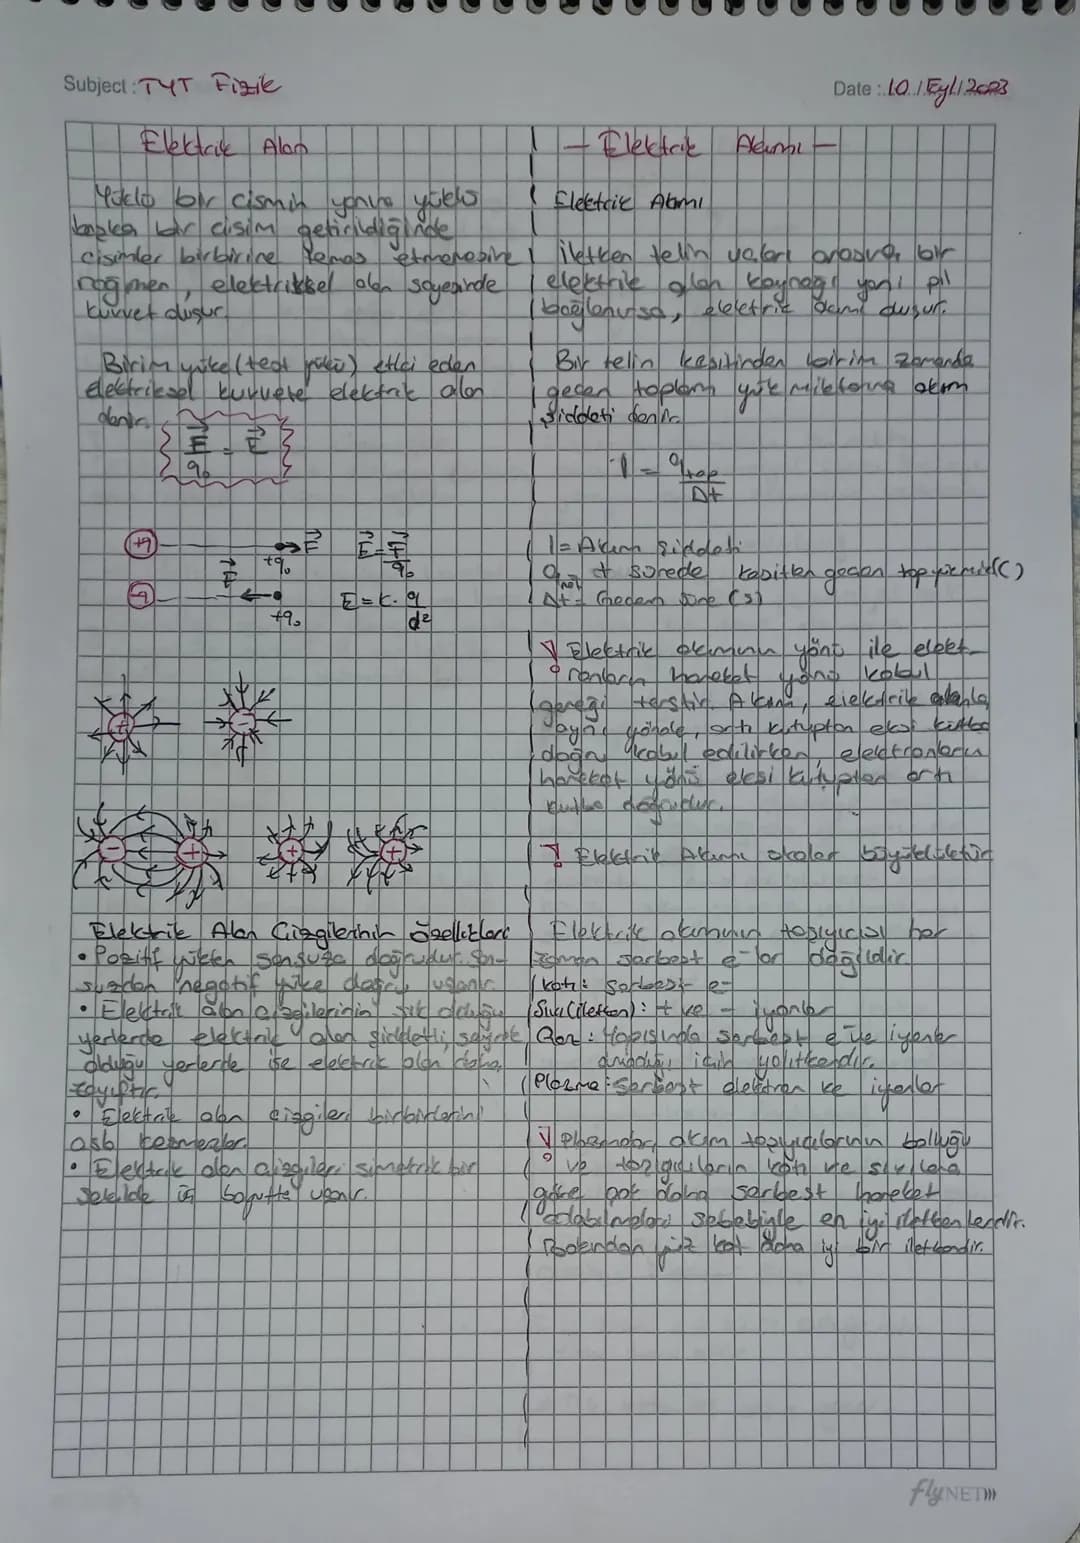 Subject : TYT Fizik
Date : 10 / Eyl / 2023
Elektrik Alan
Yüklü bir cismin yanına yüklü
başka bir cisim getirildiğinde
cisimler birbirine temas etmemesine
rağmen, elektriksel alan sayesinde
kuvvet oluşur.
Birim yüke (test yükü) etki eden
elektriksel kuvvete elektrik alan
denir.
F/q₀ = E
+q
+q₀
E
E = F/q₀
-q
E
+q₀
E = k. q/d²
+
-
-
+
+
+
Elektrik Alan Çizgilerinin Özellikleri
• Pozitif yükten sonsuza doğrudur. Son-
suzdan negatif yüke doğru uzanır.
• Elektrik alan çizgilerinin sık olduğu
yerlerde elektrik alan şiddetli, seyrek
olduğu yerlerde ise elektrik alan daha
zayıftır.
• Elektrik alan çizgileri birbirlerini
asla kesmezler.
• Elektrik alan çizgileri simetrik bir
şekilde üç boyutta uzanır.
— Elektrik Akımı —
Elektrik Akımı
İletken telin uçları arasına bir
elektrik alan kaynağı yani pil
bağlanırsa, elektrik akımı oluşur.
Bir telin kesitinden birim zamanda
geçen toplam yük miktarına akım
şiddeti denir.
I = q top / Δt
I = Akım şiddeti
t sürede kesitten geçen top. yük (C)
Δt = Geçen süre (s)
! Elektrik akımının yönü ile elekt-
ronların hareket yönü kabul
gereği terstir. Akım, elektrik alanla
aynı yönde, artı kutuptan eksi kutba
doğru kabul edilirken, elektronların
hareket yönü eksi kutuptan artı
kutba doğrudur.
! Elektrik Akımı skaler büyüklüktür
Elektrik akımının taşıyıcısı her
zaman serbest e- lar değildir.
Katı: Serbest e-
Sıvı (iletken) : + ve - iyonlar
Gaz : Hapisinde serbest e ve iyonlar
için yalıtkandır.
Plazma : Serbest elektron ve iyonlar
! Plazmalar, akım taşıyıcılarının bolluğu
ve taşıyıcıların katı ve sıvılara
göre çok daha serbest hareket
edebilmeleri sebebiyle en iyi iletkenlerdir.
Bakırdan yüz kat daha iyi bir iletkendir.
flyNET